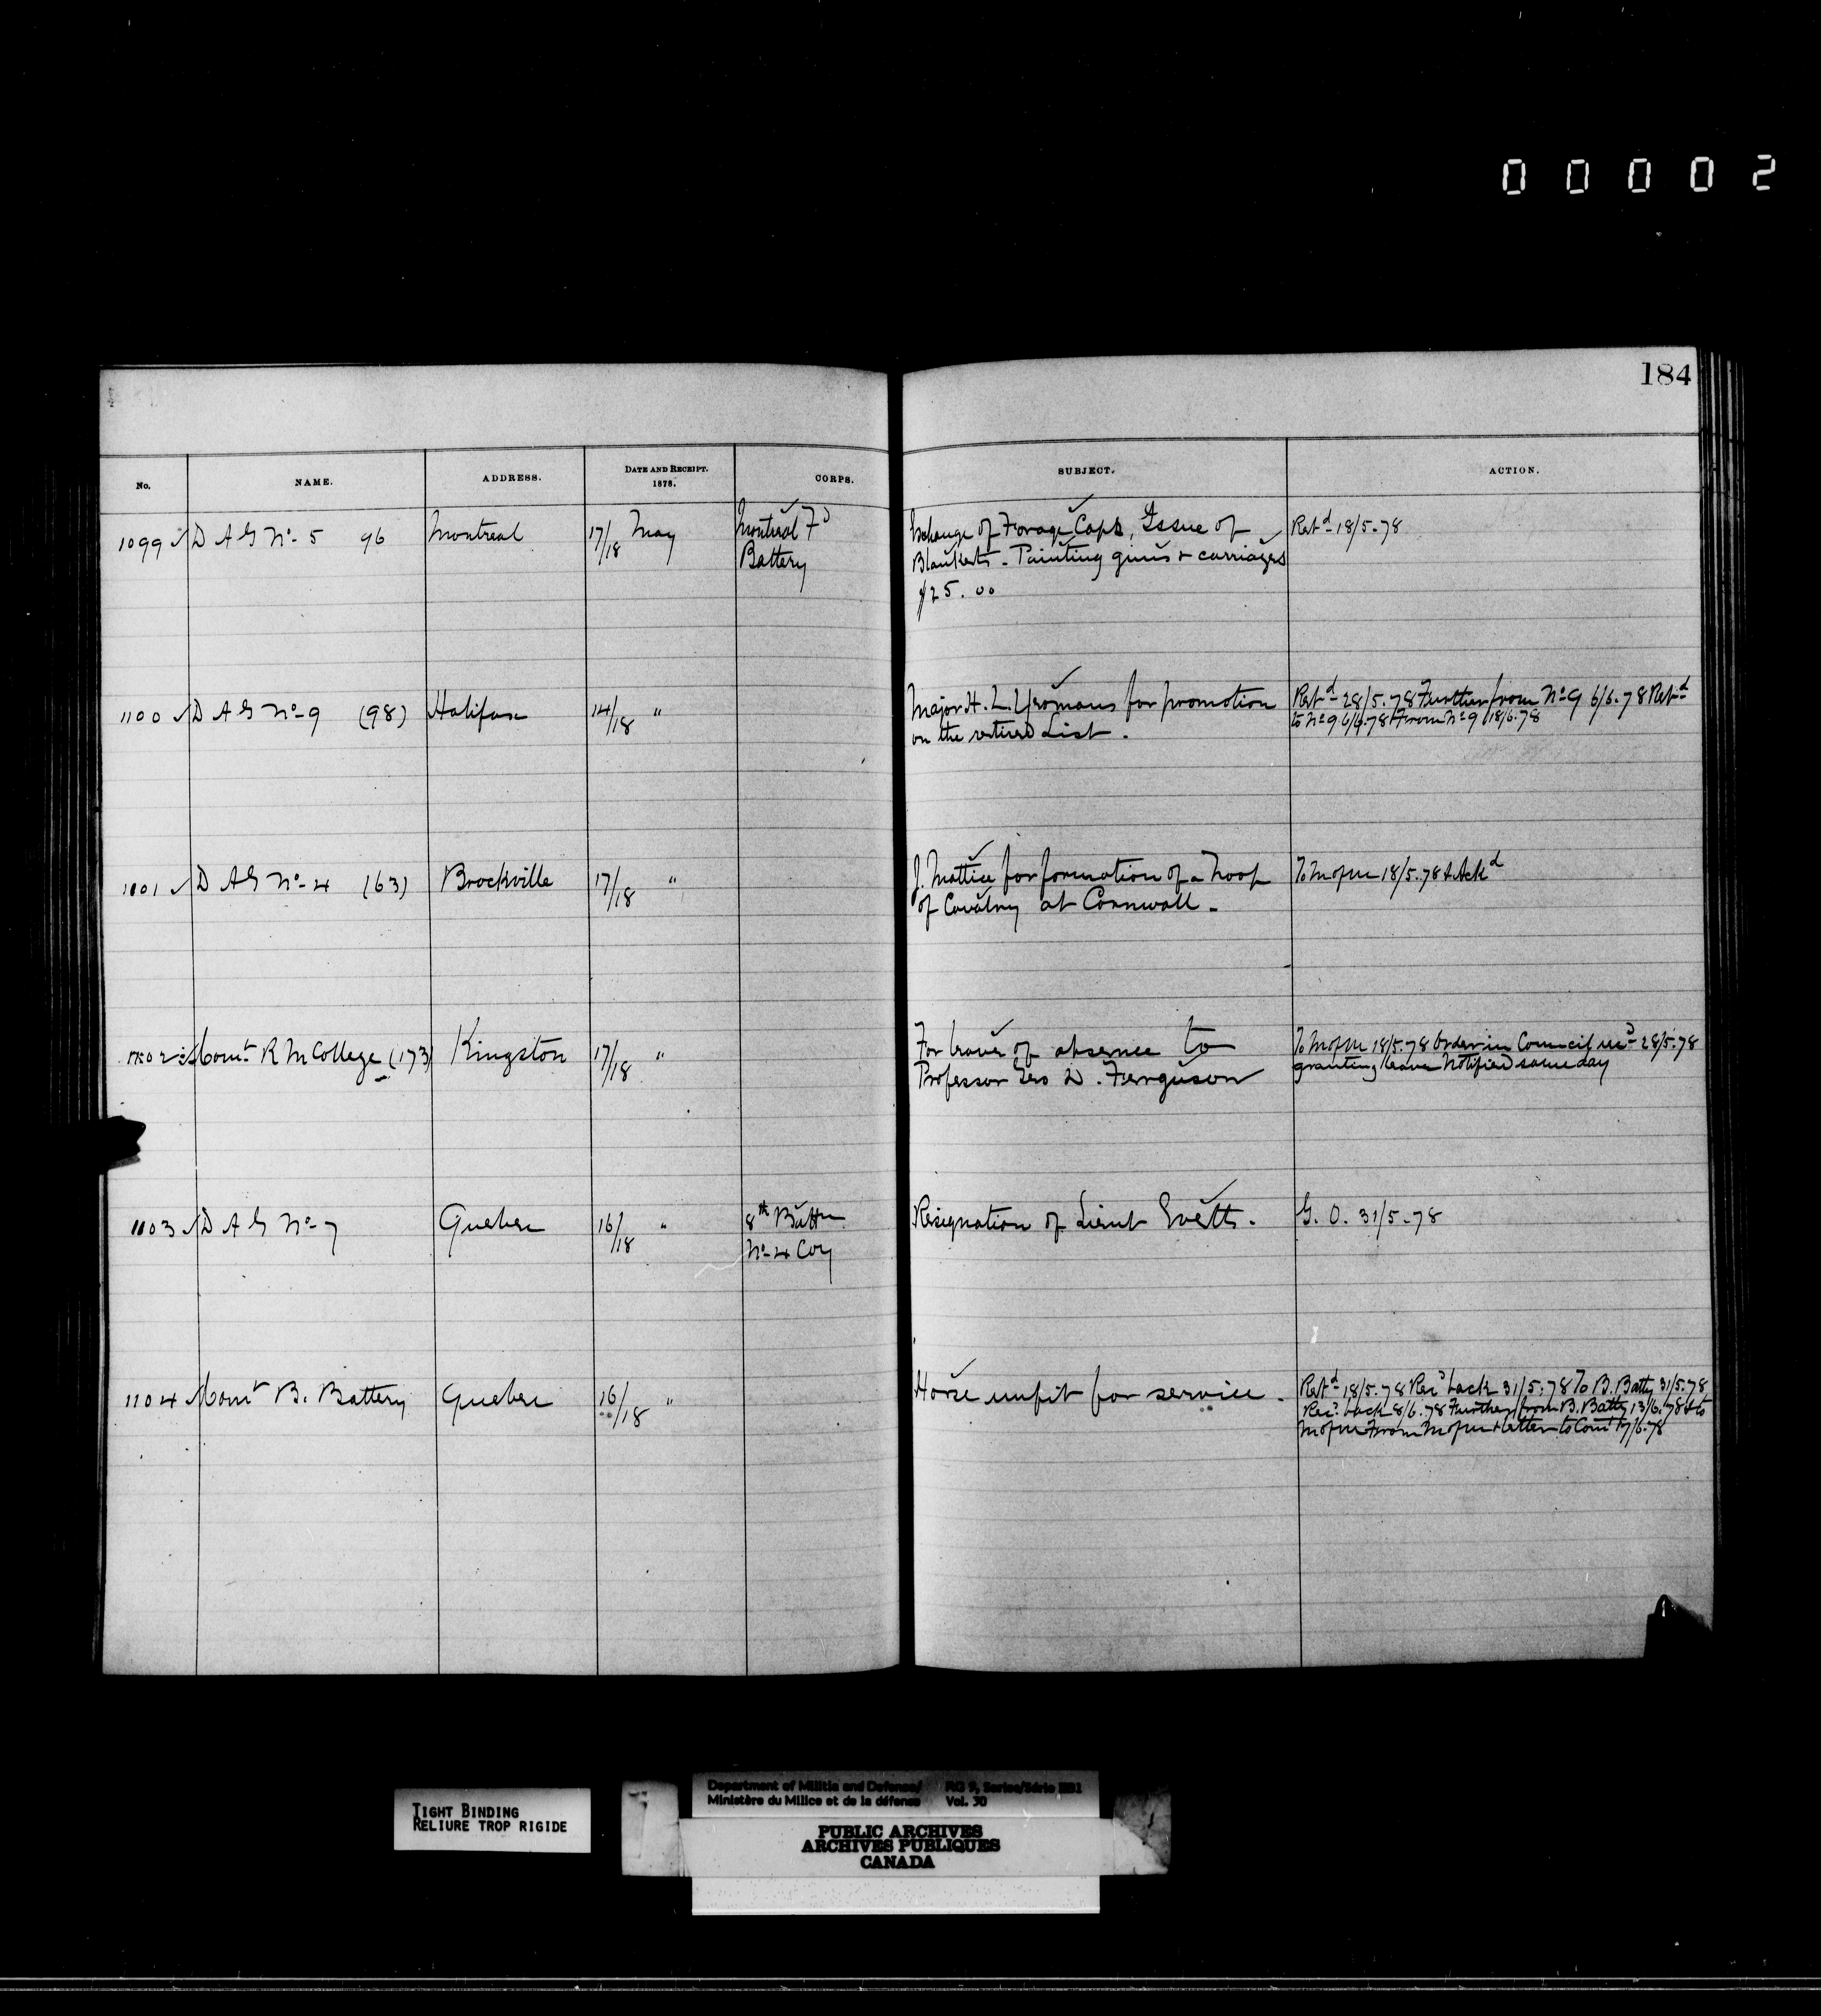 00002
184
No. NAME. ADDRESS. DATE AND RECEIPT. 1878. CORPS. SUBJECT. ACTION.
1099 ✓ D A G No- 5 96 Montreal 17/18 May Montreal Fd Exchange of Forage Caps, Issue of Retd 18/5.78
Battery Blankets - Painting guns & carriages
$25.00
1100 ✓ D A G No- 9 (98) Halifax 14/18 " Major H. L. Yeomans for promotion Retd 28/5.78 Further from No- 9 6/6.78 Retd
on the retired List. to No 9 6/6.78 From No 9 18/6.78
1101 ✓ D A G No- 4 (63) Brockville 17/18 " J. Mattice for formation of a Troop To M of M 18/5.78 & Ackd
of Cavalry at Cornwall -
1102 Comt R M College (173) Kingston 17/18 " For leave of absence to To M of M 18/5.78 Order in Council recd 28/5.78
Professor Geo D. Ferguson granting leave Notified same day
1103 ✓ D A G No- 7 Quebec 16/18 " 8th Battn Resignation of Lieut Evetts. G. O. 31/5.78
No- 4 Coy
1104 Comt B. Battery Quebec 16/18 " Horse unfit for service. Retd 18/5.78 Recd back 31/5.78 To B. Batty 31/5.78
Recd back 8/6.78 Further from B. Batty 13/6.78 & to
M of M From M of M & letter to Comt 17/6.78
TIGHT BINDING
RELIURE TROP RIGIDE
Department of Militia and Defence/ RG 9, Series/Série IIB1
Ministère du Milice et de la défense Vol. 30
PUBLIC ARCHIVES
ARCHIVES PUBLIQUES
CANADA